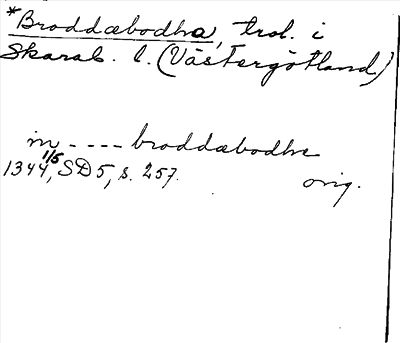 *Broddæbodha, trol. i
Skarab. l. (Västergötland)
in ---- broddæbodhe
1344 1/5, SD 5, s. 257.
orig.